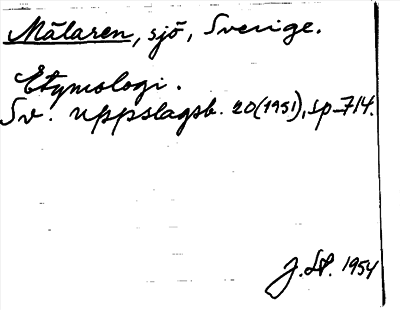 Mälaren, sjö, Sverige.
Etymologi.
Sv. uppslagsb. 20(1951), sp 714.
1954